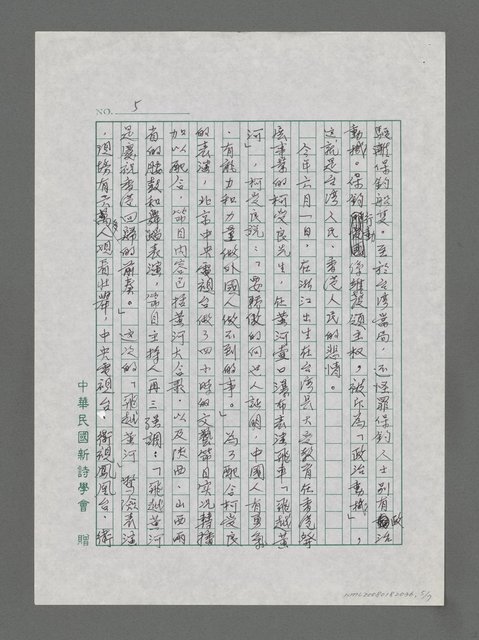 NO. 5
驅離保釣船隻。至於台灣當局,還怪罪保釣人士別有政治
動機。保釣行動係維護領土主權,被斥為「政治動機」,
這就是台灣人民、香港人民的悲情。
今年六月一日,在浙江出生在台灣長大受教育在香港發
展事業的柯受良先生,在黃河壺口瀑布表演飛車「飛越黃
河」,柯受良說:「要驕傲的向世人証明,中國人有勇氣
,有能力和力量做外國人做不到的事。」為了配合柯受良
的表演,北京中央電視台做了四小時的文藝節目實況轉播
加以配合,節目內容已括黃河大合唱,以及陝西、山西兩
省的腰鼓和舞蹈表演,節目主持人再三強調:「飛越黃河
是慶祝香港回歸的前奏。」這次的「飛越黃河」驚險表演
,現場有六萬多人觀看壯舉,中央電視台、衛視鳳凰台、衛
中華民國新詩學會 贈
NMTL20080182096, 5/7